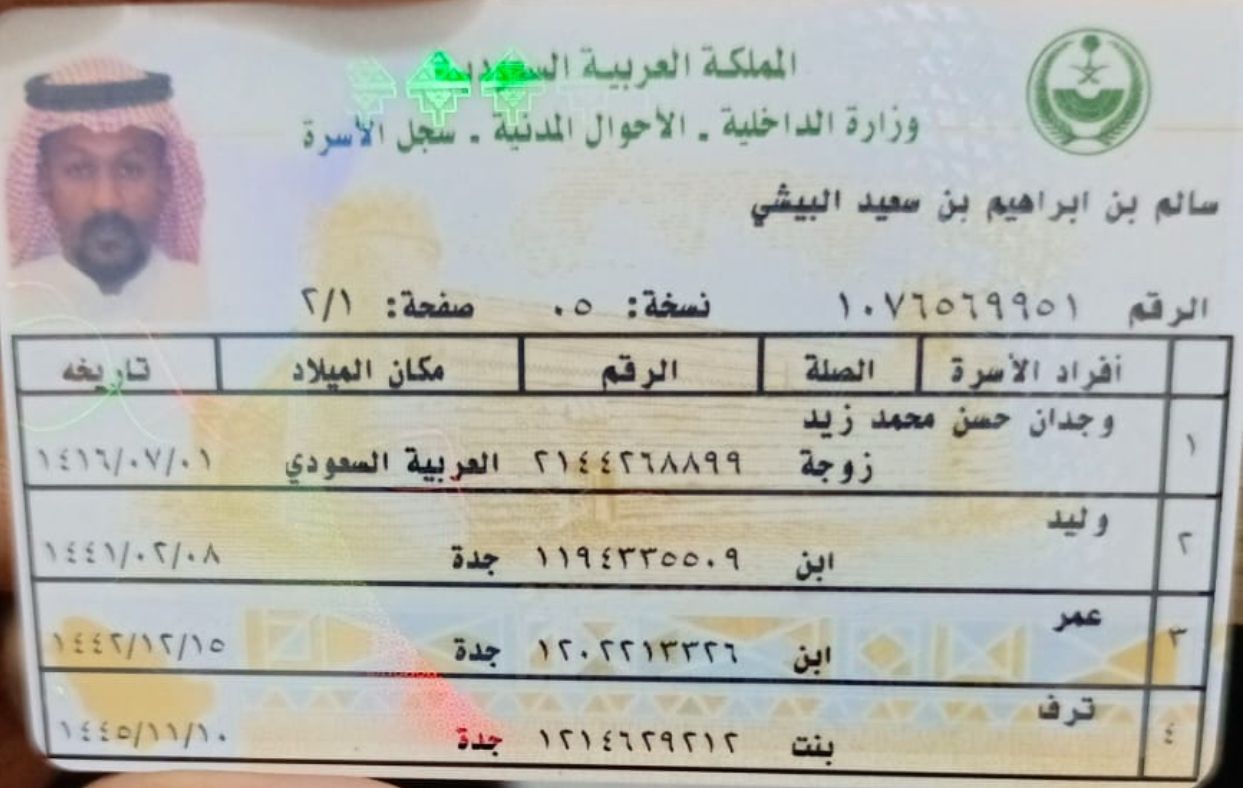 المملكة العربية السعودية
وزارة الداخلية ـ الأحوال المدنية ـ سجل الأسرة
سالم بن ابراهيم بن سعيد البيشي
الرقم ١٠٧٦٥٦٩٩٥١ نسخة: ٠٥ صفحة: ٢/١
أفراد الأسرة الصلة الرقم مكان الميلاد تاريخه
١ وجدان حسن محمد زيد
زوجة ٢١٤٤٢٦٨٨٩٩ العربية السعودي ١٤١٦/٠٧/٠١
٢ وليد
ابن ١١٩٤٣٣٥٥٠٩ جدة ١٤٤١/٠٢/٠٨
٣ عمر
ابن ١٢٠٢٢١٣٣٢٦ جدة ١٤٤٢/١٢/١٥
٤ ترف
بنت ١٢١٤٦٢٩٢١٢ جدة ١٤٤٥/١١/١٠